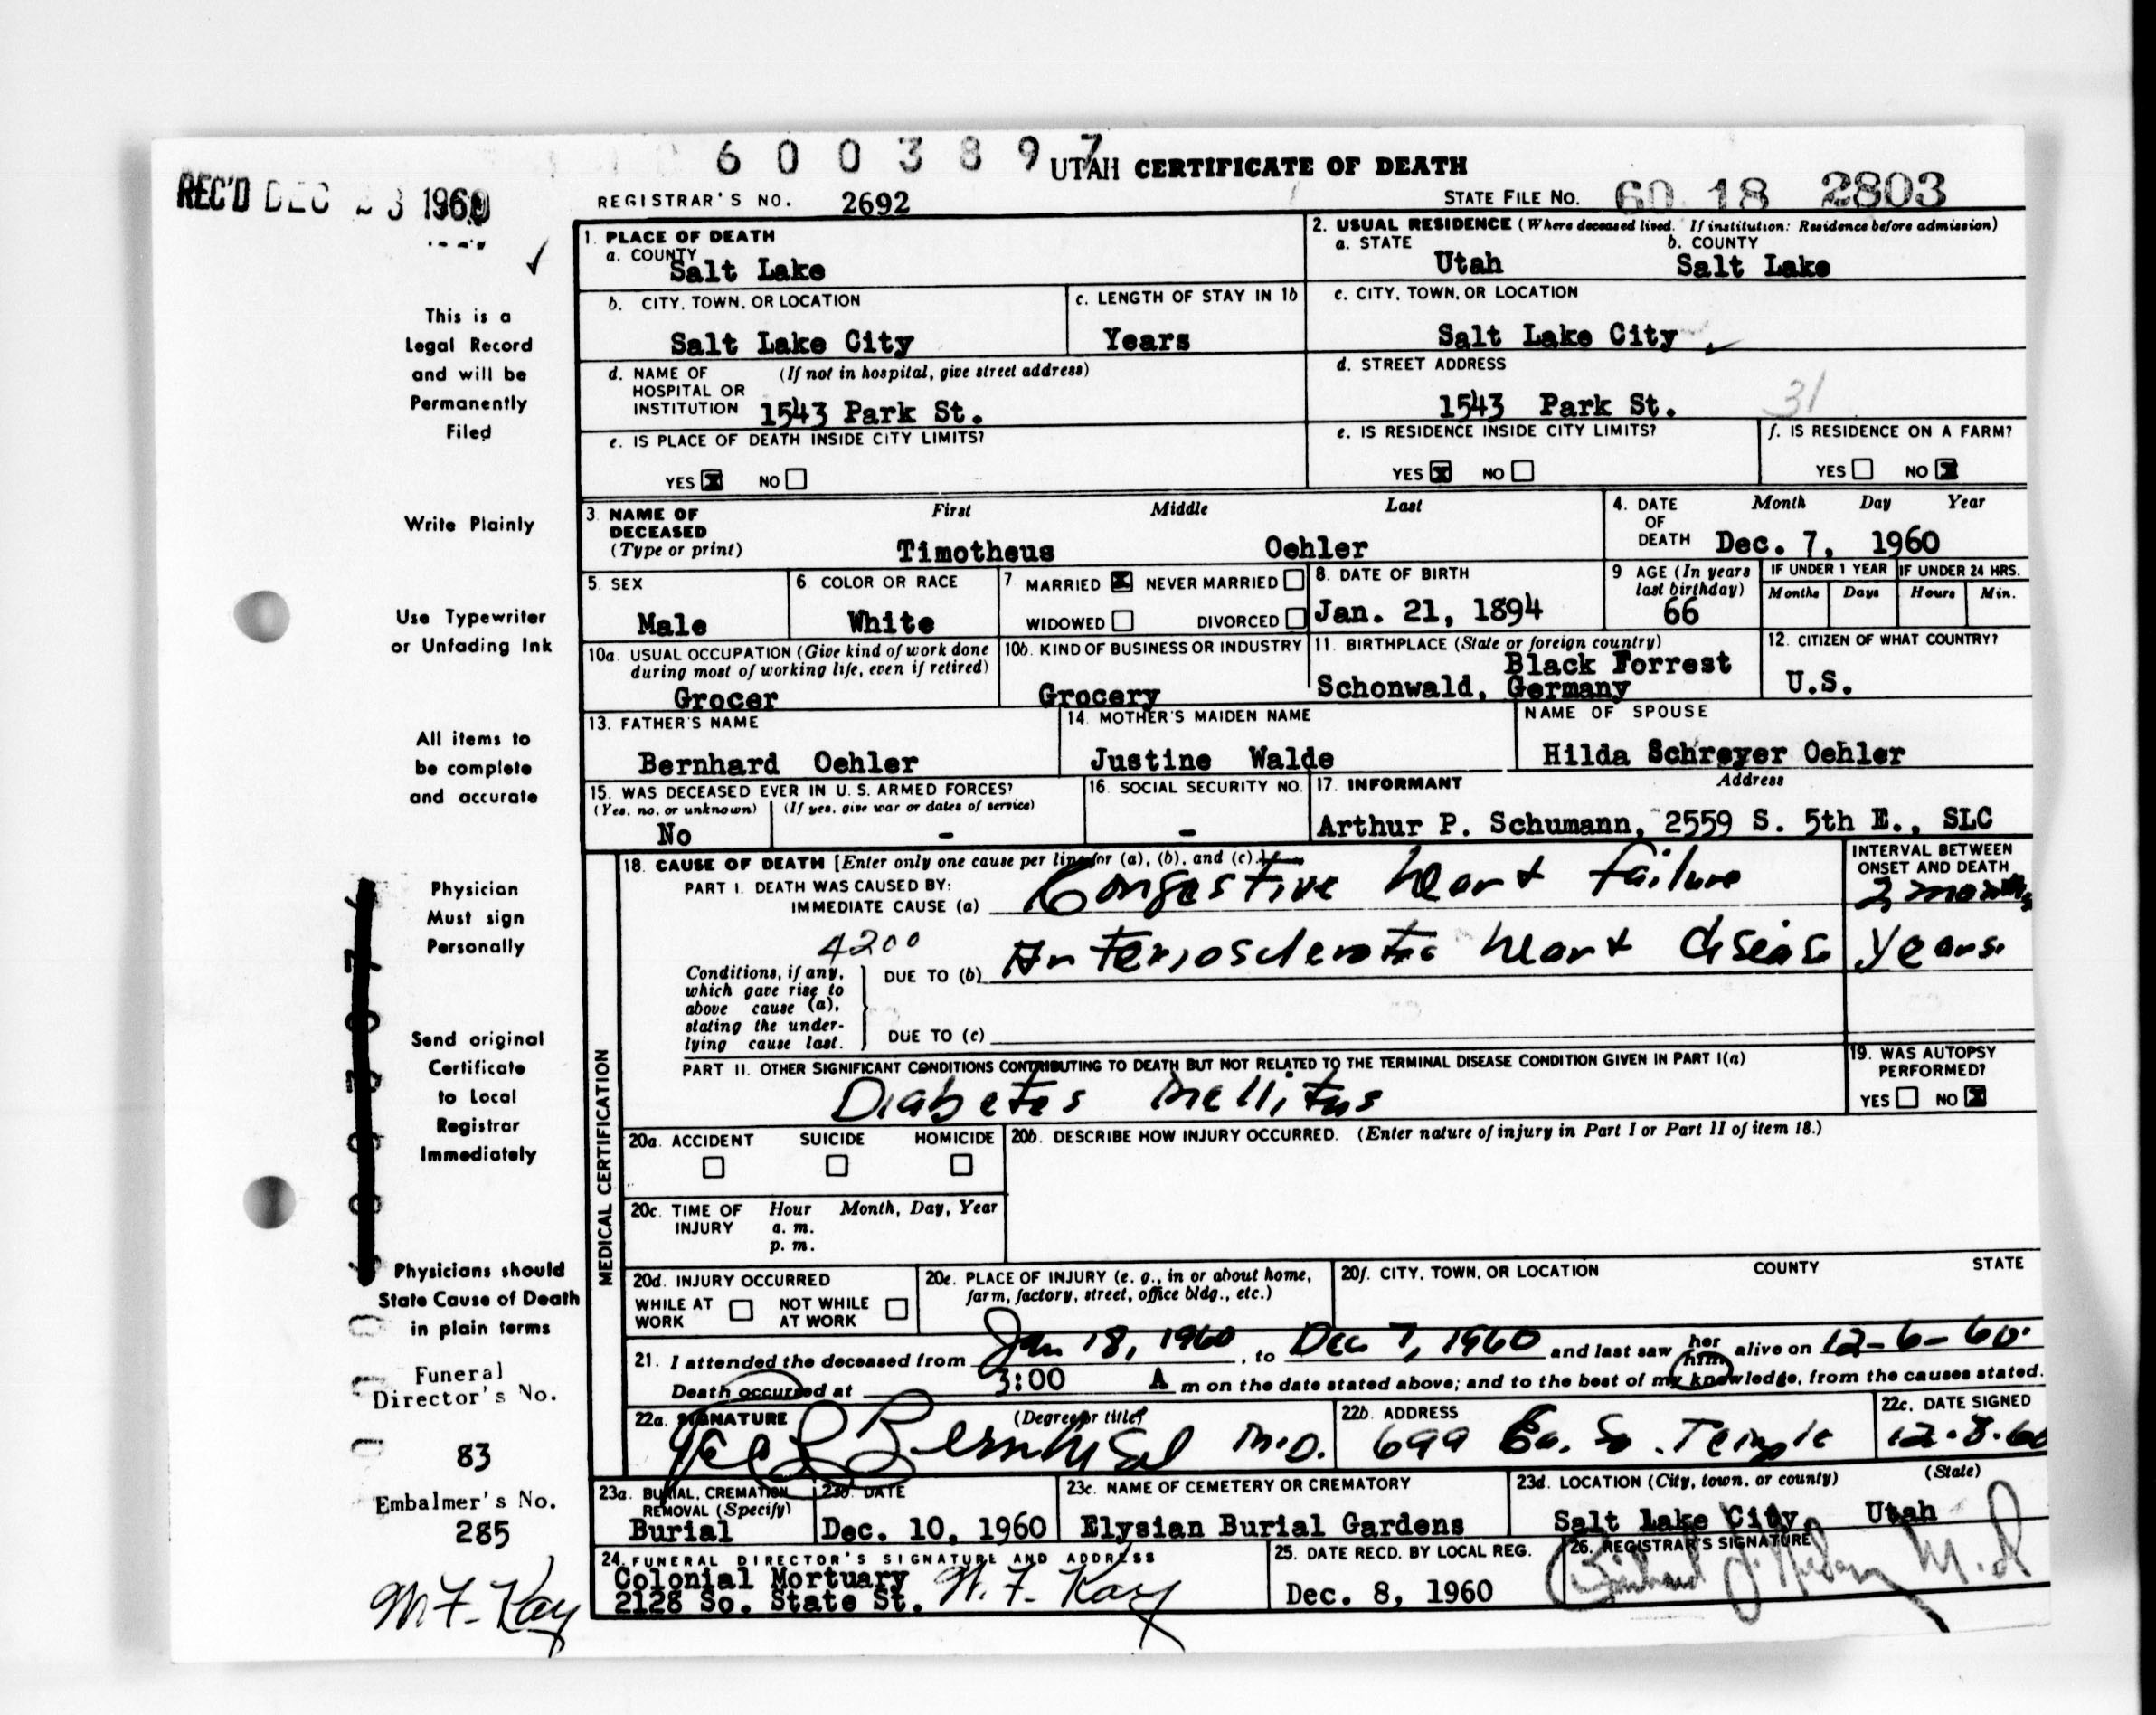 6 0 0 3 8 9 7
UTAH CERTIFICATE OF DEATH
REC'D DEC 23 1960
REGISTRAR'S NO. 2692
STATE FILE NO. 60 18 2803
This is a
Legal Record
and will be
Permanently
Filed
Write Plainly
Use Typewriter
or Unfading Ink
All items to
be complete
and accurate
Physician
Must sign
Personally
Send original
Certificate
to Local
Registrar
Immediately
Physicians should
State Cause of Death
in plain terms
Funeral
Director's No.
83
Embalmer's No.
285
W. F. Kay
1. PLACE OF DEATH
a. COUNTY
Salt Lake
2. USUAL RESIDENCE (Where deceased lived. If institution: Residence before admission)
a. STATE b. COUNTY
Utah Salt Lake
b. CITY, TOWN, OR LOCATION
Salt Lake City
c. LENGTH OF STAY IN 1b
Years
c. CITY, TOWN, OR LOCATION
Salt Lake City
d. NAME OF (If not in hospital, give street address)
HOSPITAL OR
INSTITUTION 1543 Park St.
d. STREET ADDRESS
1543 Park St. 31
e. IS PLACE OF DEATH INSIDE CITY LIMITS?
YES X NO
e. IS RESIDENCE INSIDE CITY LIMITS?
YES X NO
f. IS RESIDENCE ON A FARM?
YES NO X
3. NAME OF DECEASED (Type or print)
First Middle Last
Timotheus Oehler
4. DATE OF DEATH
Month Day Year
Dec. 7, 1960
5. SEX
Male
6. COLOR OR RACE
White
7. MARRIED X NEVER MARRIED
WIDOWED DIVORCED
8. DATE OF BIRTH
Jan. 21, 1894
9. AGE (In years last birthday)
66
IF UNDER 1 YEAR IF UNDER 24 HRS.
Months Days Hours Min.
10a. USUAL OCCUPATION (Give kind of work done
during most of working life, even if retired)
Grocer
10b. KIND OF BUSINESS OR INDUSTRY
Grocery
11. BIRTHPLACE (State or foreign country)
Black Forrest
Schonwald, Germany
12. CITIZEN OF WHAT COUNTRY?
U.S.
13. FATHER'S NAME
Bernhard Oehler
14. MOTHER'S MAIDEN NAME
Justine Walde
NAME OF SPOUSE
Hilda Schreyer Oehler
15. WAS DECEASED EVER IN U. S. ARMED FORCES?
(Yes, no, or unknown) (If yes, give war or dates of service)
No -
16. SOCIAL SECURITY NO.
-
17. INFORMANT Address
Arthur P. Schumann, 2559 S. 5th E., SLC
MEDICAL CERTIFICATION
18. CAUSE OF DEATH [Enter only one cause per line for (a), (b), and (c).]
PART I. DEATH WAS CAUSED BY:
IMMEDIATE CAUSE (a) Congestive heart failure
INTERVAL BETWEEN
ONSET AND DEATH
2 months
4200
Conditions, if any,
which gave rise to
above cause (a),
stating the under-
lying cause last.
DUE TO (b) Arteriosclerotic heart disease Years
DUE TO (c)
PART II. OTHER SIGNIFICANT CONDITIONS CONTRIBUTING TO DEATH BUT NOT RELATED TO THE TERMINAL DISEASE CONDITION GIVEN IN PART I(a)
Diabetes mellitus
19. WAS AUTOPSY
PERFORMED?
YES NO X
20a. ACCIDENT SUICIDE HOMICIDE
20b. DESCRIBE HOW INJURY OCCURRED. (Enter nature of injury in Part I or Part II of item 18.)
20c. TIME OF INJURY Hour Month, Day, Year
a. m.
p. m.
20d. INJURY OCCURRED
WHILE AT WORK NOT WHILE AT WORK
20e. PLACE OF INJURY (e. g., in or about home,
farm, factory, street, office bldg., etc.)
20f. CITY, TOWN, OR LOCATION COUNTY STATE
21. I attended the deceased from Jan 18, 1960, to Dec 7, 1960 and last saw her him alive on 12-6-60.
Death occurred at 3:00 A m on the date stated above; and to the best of my knowledge, from the causes stated.
22a. SIGNATURE (Degree or title)
Bernhisel M.D.
22b. ADDRESS
699 Ea. So. Temple
22c. DATE SIGNED
12-8-60
23a. BURIAL, CREMATION
REMOVAL (Specify)
Burial
23b. DATE
Dec. 10, 1960
23c. NAME OF CEMETERY OR CREMATORY
Elysian Burial Gardens
23d. LOCATION (City, town, or county) (State)
Salt Lake City, Utah
24. FUNERAL DIRECTOR'S SIGNATURE AND ADDRESS
Colonial Mortuary W. F. Kay
2128 So. State St.
25. DATE RECD. BY LOCAL REG.
Dec. 8, 1960
26. REGISTRAR'S SIGNATURE
M.D